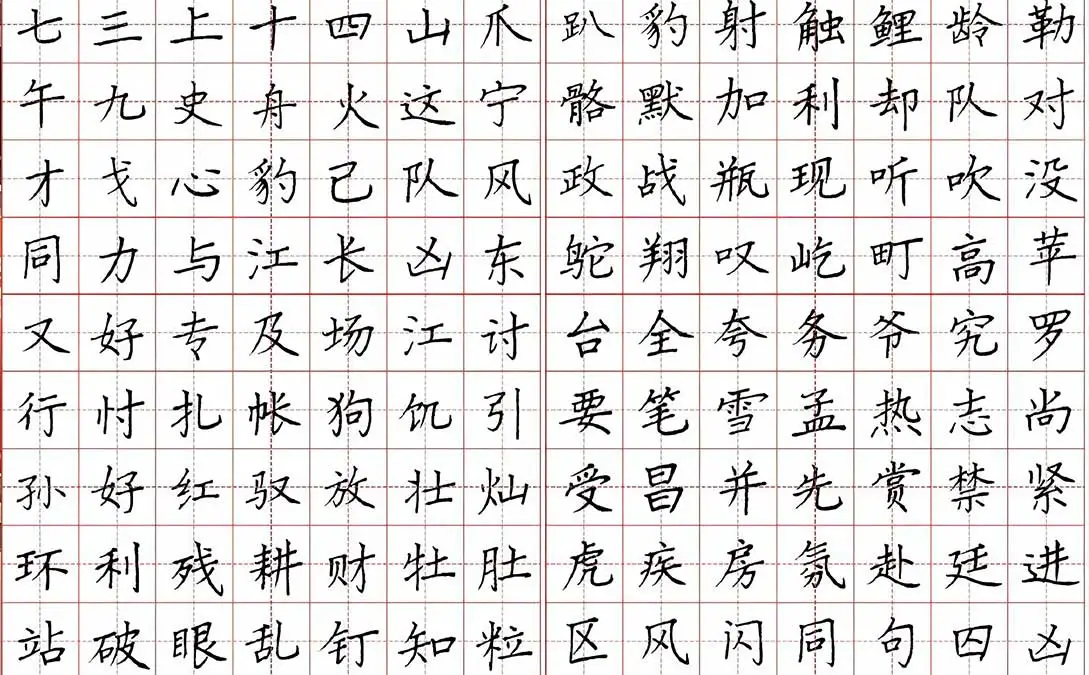 七三上十四山爪趴豹射触鲤龄勒
午九史舟火这宁骼默加利却队对
才戈心豹己队风政战瓶现听吹没
同力与江长凶东鸵翔叹屹町高苹
又好专及场江讨台全夸务爷究罗
行忖扎帐狗饥引要笔雪孟热志尚
孙好红驭放壮灿受昌并先赏禁紧
环利残耕财牡肚虎疾房氛赴廷进
站破眼乱钉知粒区风闪同句囚凶